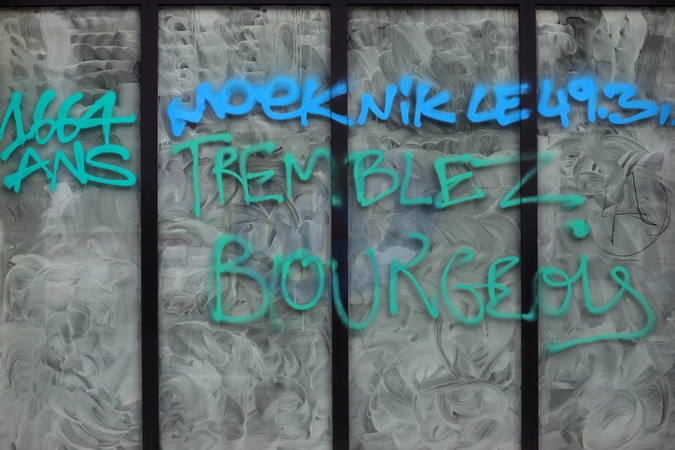 1664
ANS
MOEK NIK LE 49.3..
TREMBLEZ
BOURGEOIS
A